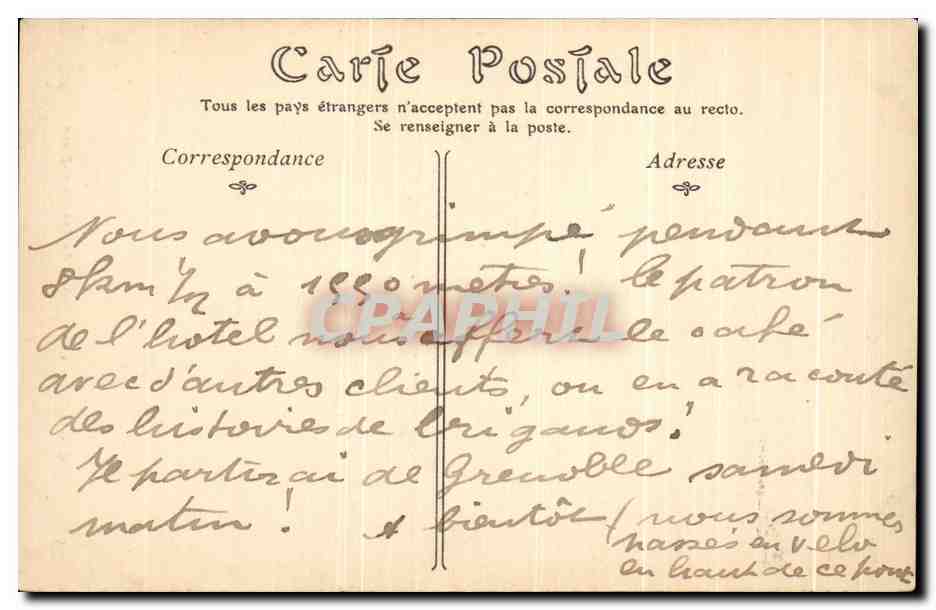 Carte Postale
Tous les pays étrangers n'acceptent pas la correspondance au recto.
Se renseigner à la poste.
Correspondance
Adresse
Nous avons grimpé pendant
8 km 1/2 à 1990 mètres! le patron
de l'hotel nous a offert le café
avec d'autres clients, on en a raconté
des histoires de brigands!
Je partirai de Grenoble samedi
matin! A bientôt (nous sommes
passés en vélo
en haut de ce pont
CPAPHIL